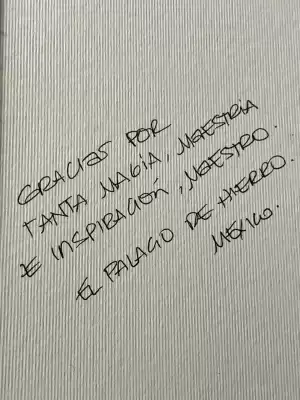 GRACIAS POR
TANTA MAGIA, MAESTRIA
E INSPIRACIÓN, MAESTRO.
EL PALACIO DE HIERRO.
MÉXICO.